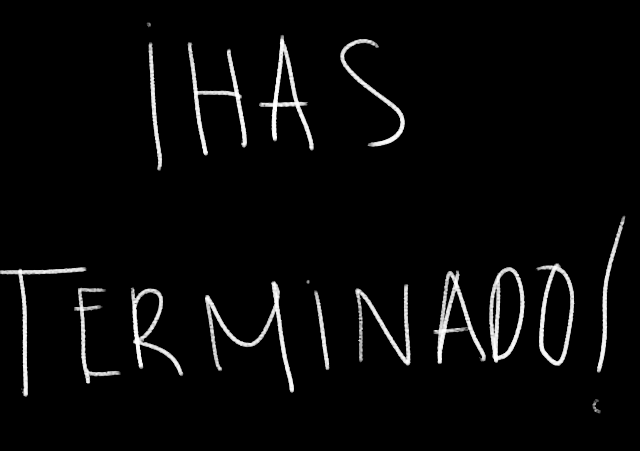 ¡HAS
TERMINADO!